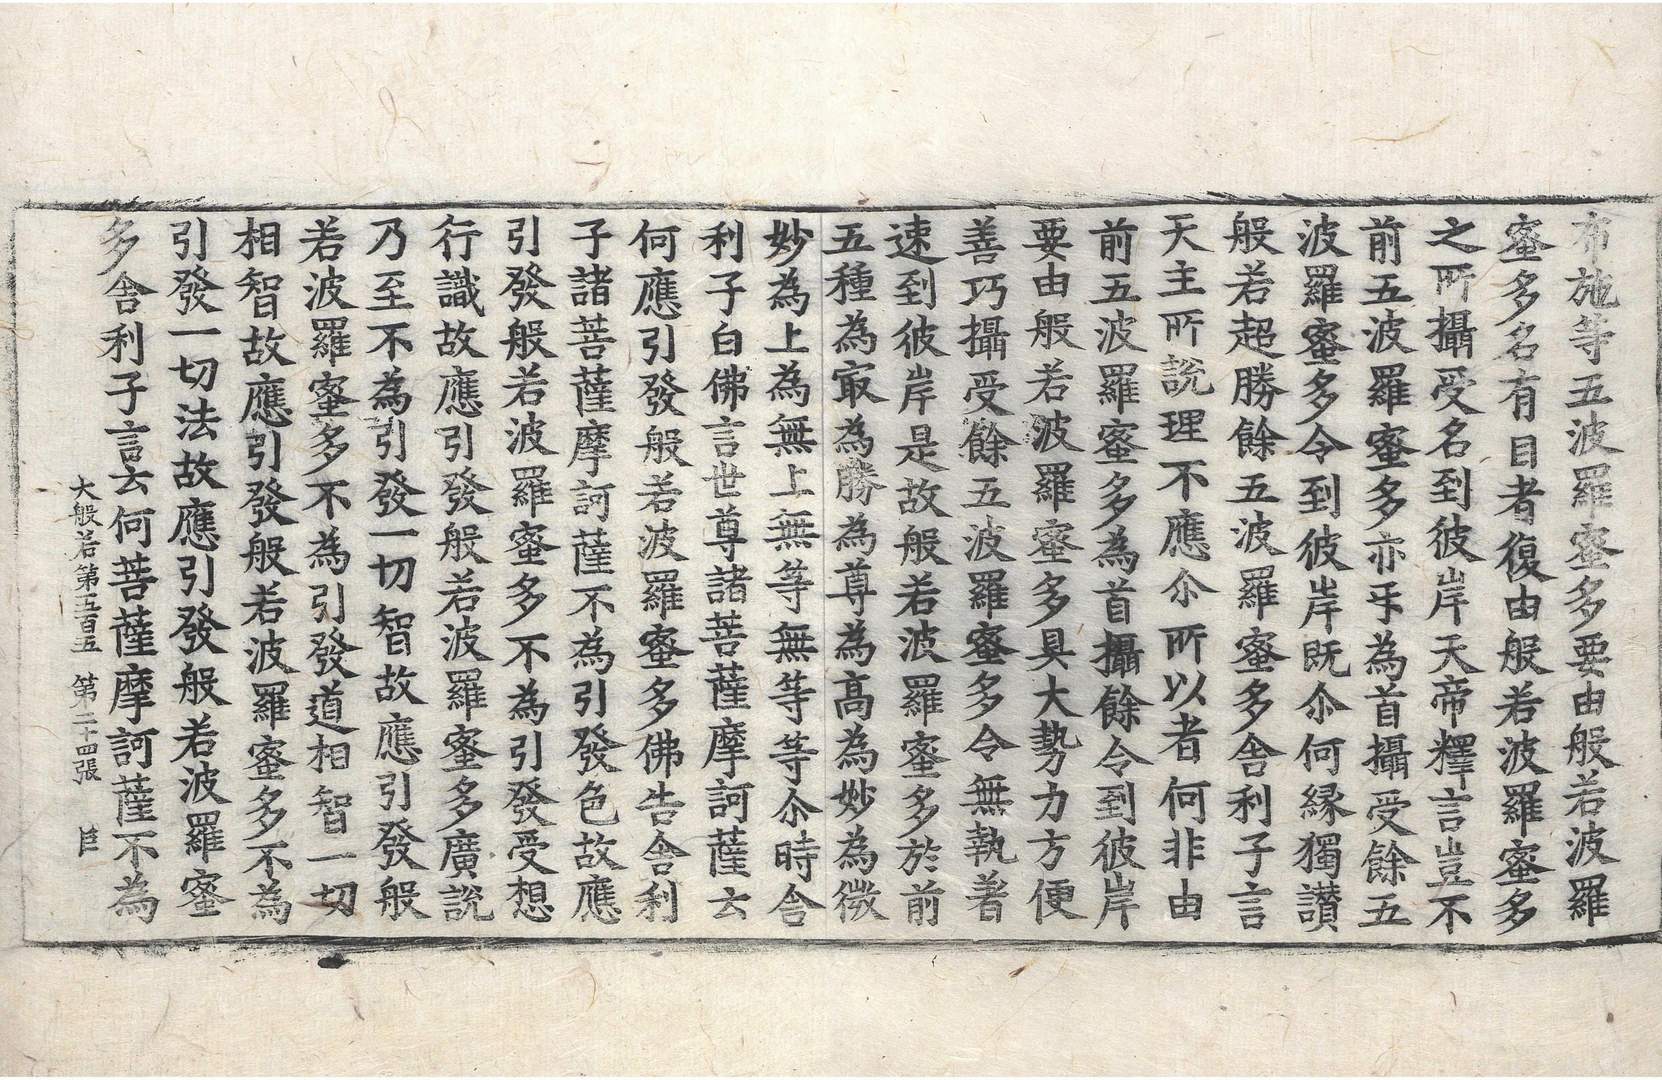 布施等五波羅蜜多要由般若波羅
蜜多名有目者復由般若波羅蜜多
之所攝受名到彼岸天帝釋言豈不
前五波羅蜜多亦㸦為首攝受餘五
波羅蜜多令到彼岸既尒何縁獨讃
般若超勝餘五波羅蜜多舍利子言
天主所說理不應尒所以者何非由
前五波羅蜜多為首攝餘令到彼岸
要由般若波羅蜜多具大勢力方便
善巧攝受餘五波羅蜜多令無執著
速到彼岸是故般若波羅蜜多於前
五種為㝡為勝為尊為高為妙為微
妙為上為無上無等無等等尒時舍
利子白佛言世尊諸菩薩摩訶薩云
何應引發般若波羅蜜多佛告舍利
子諸菩薩摩訶薩不為引發色故應
引發般若波羅蜜多不為引發受想
行識故應引發般若波羅蜜多廣說
乃至不為引發一切智故應引發般
若波羅蜜多不為引發道相智一切
相智故應引發般若波羅蜜多不為
引發一切法故應引發般若波羅蜜
多舍利子言云何菩薩摩訶薩不為
大般若第五百五 第二十四張 臣